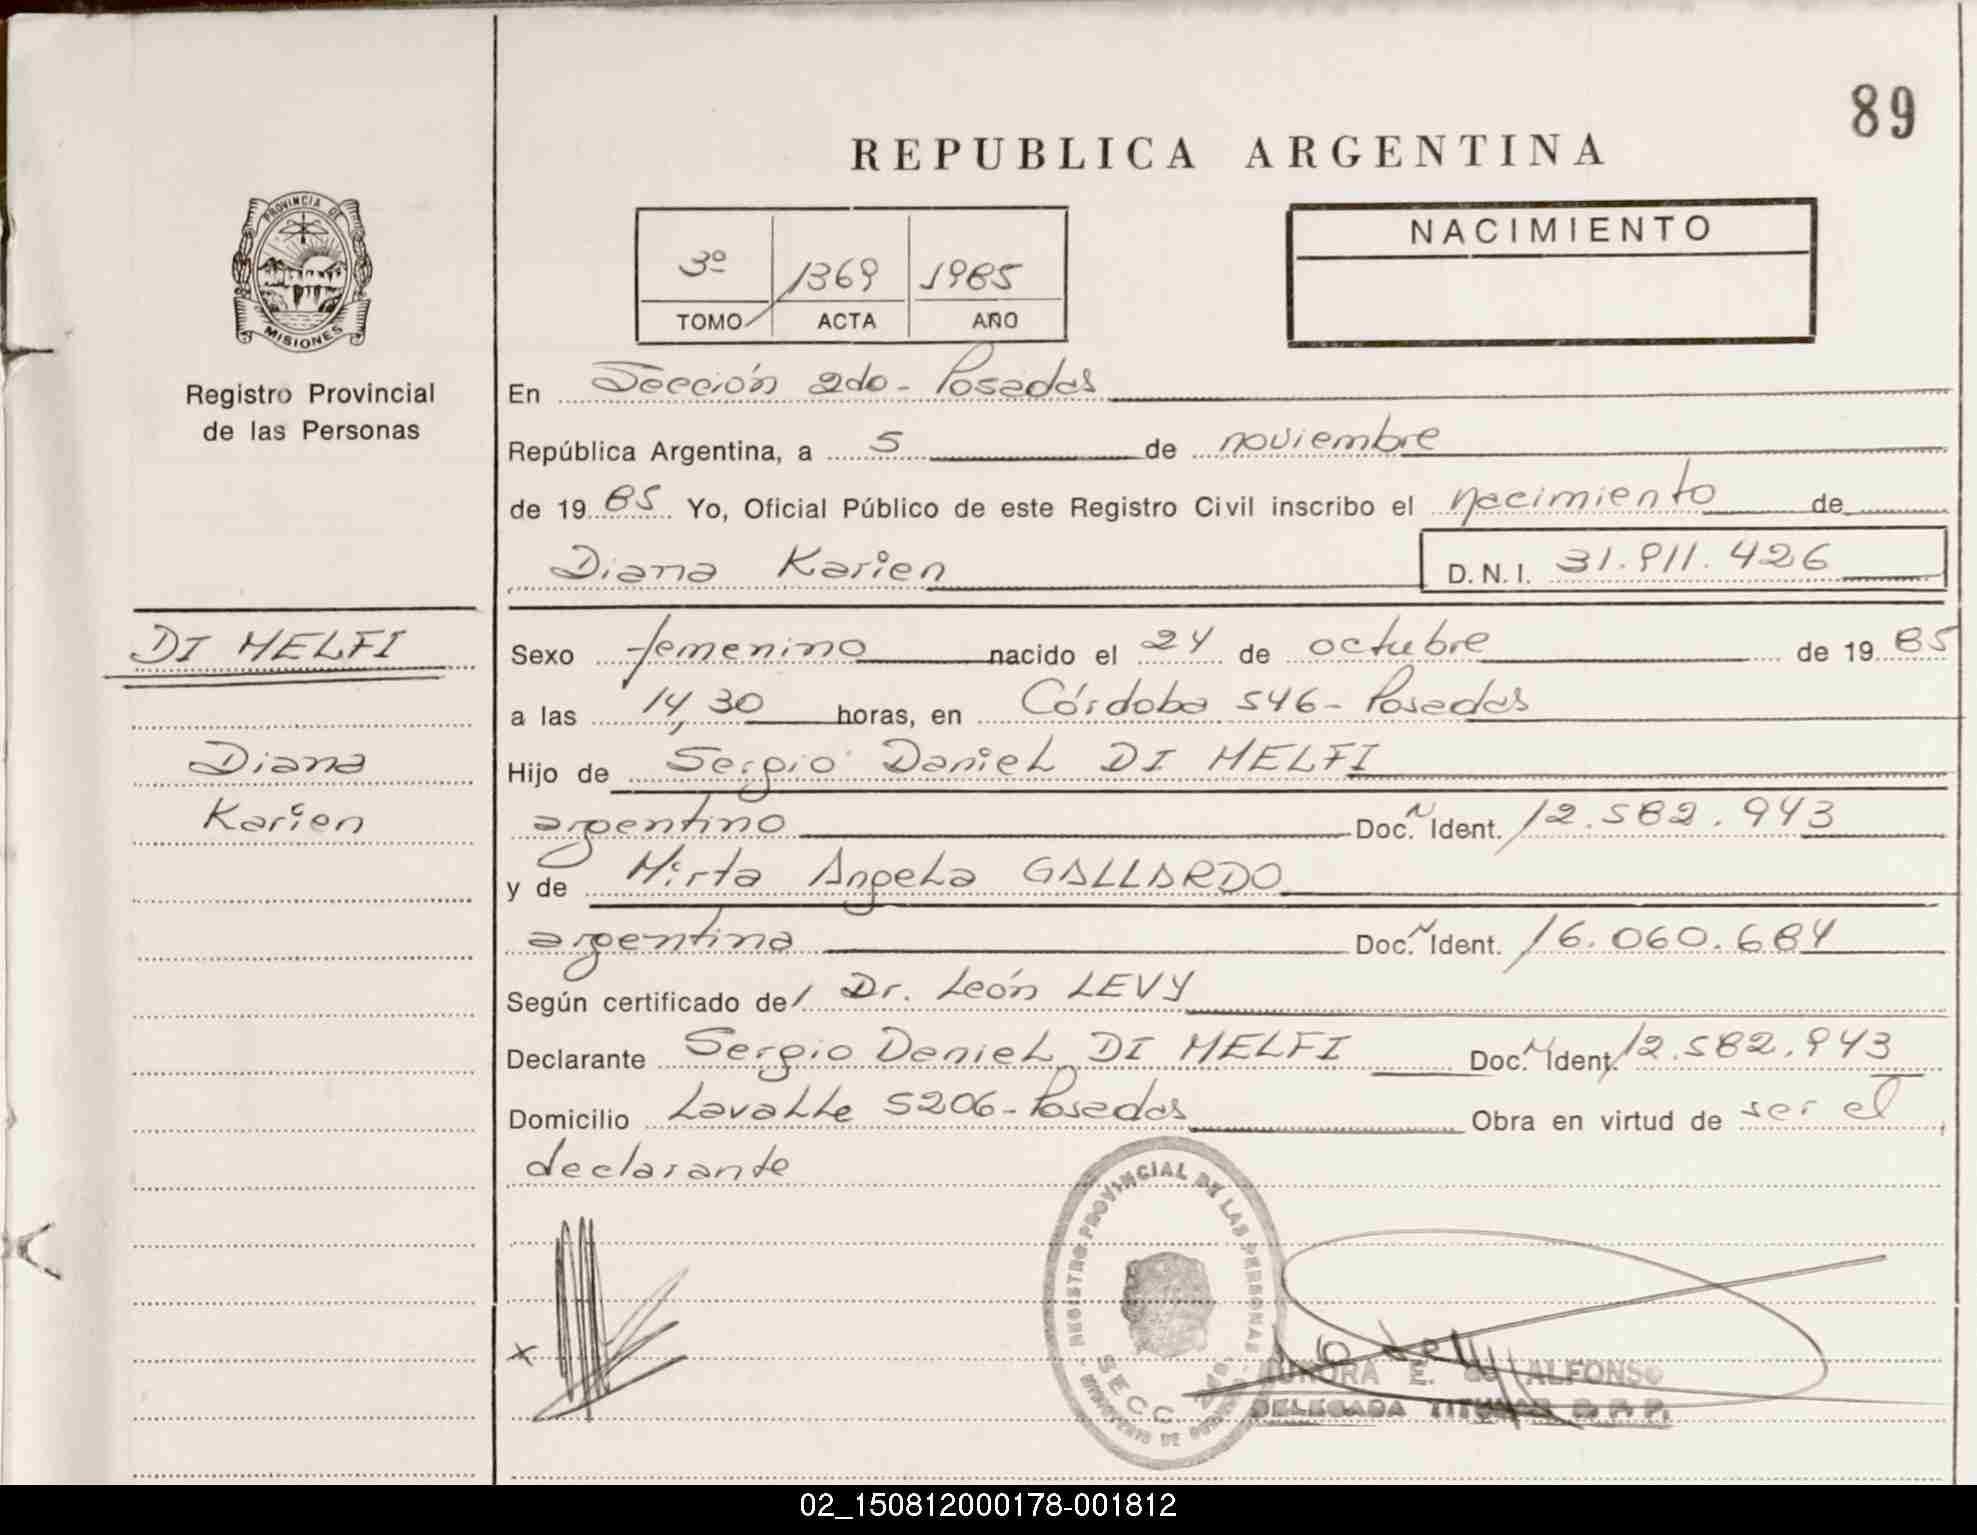 89
REPUBLICA ARGENTINA
PROVINCIA DE
MISIONES
Registro Provincial
de las Personas
3º 1369 1985
TOMO ACTA AÑO
NACIMIENTO
En Sección 2do - Posadas
República Argentina, a 5 de noviembre
de 19 85 Yo, Oficial Público de este Registro Civil inscribo el nacimiento de
Diana Karien D.N.I. 31.911.426
DI MELFI
Diana
Karien
Sexo femenino nacido el 24 de octubre de 19 85
a las 14,30 horas, en Córdoba 546 - Posadas
Hijo de Sergio Daniel DI MELFI
argentino Doc. N Ident. 12.582.943
y de Mirta Angela GALLARDO
argentina Doc. N Ident. 16.060.684
Según certificado del Dr. León LEVY
Declarante Sergio Daniel DI MELFI Doc. N Ident. 12.582.943
Domicilio Lavalle 5206 - Posadas Obra en virtud de ser el
declarante
REGISTRO PROVINCIAL DE LAS PERSONAS
SECC.
x
AURORA E. de ALFONSO
DELEGADA TITULAR R. P. P.
02_150812000178-001812